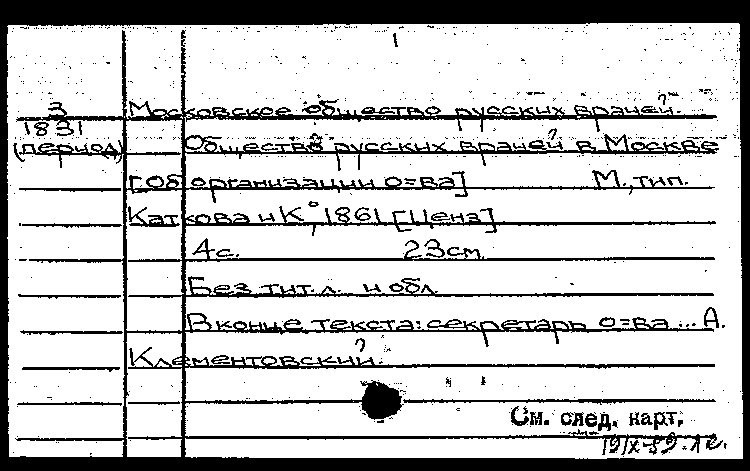 1
3
1831
(период)
Московское общество русских врачей.
Общество русских врачей в Москве
[Об организации о=ва] М., тип.
Каткова и К°, 1861 [Ценз]
4с. 23см.
Без тит. л. и обл.
В конце текста: секретарь о=ва ... А.
Клементовский.
См. след. карт.